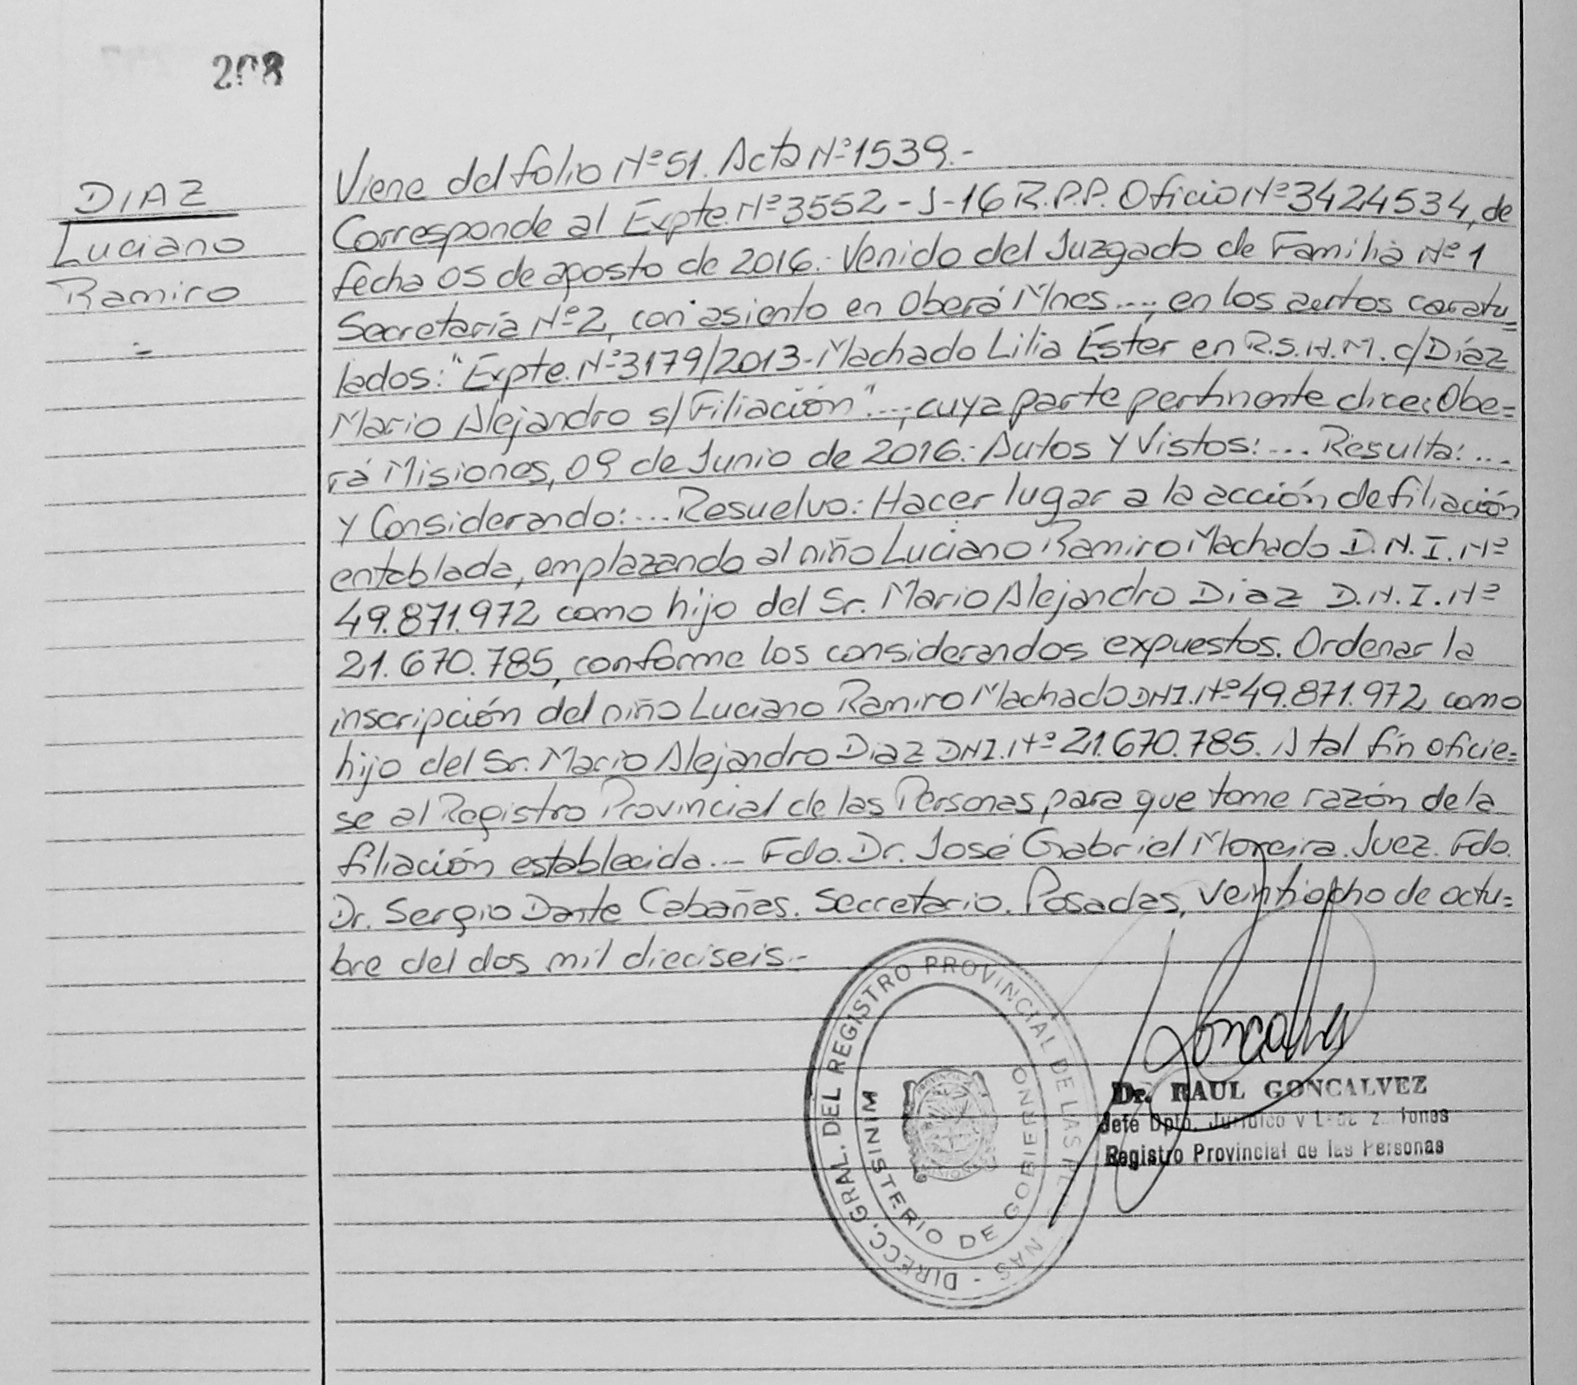 208
DIAZ
Luciano
Ramiro
Viene del folio Nº 51. Acta Nº 1539.-
Corresponde al Expte. Nº 3552-J-16 R.P.P. Oficio Nº 3424534, de
fecha 05 de agosto de 2016.- Venido del Juzgado de Familia Nº 1
Secretaría Nº 2, con asiento en Oberá Mnes...., en los autos caratu=
lados: "Expte. Nº 3179/2013-Machado Lilia Ester en R.S.H.M. c/Díaz
Mario Alejandro s/Filiación"...., cuya parte pertinente dice: Obe=
rá Misiones, 09 de Junio de 2016.- Autos y Vistos: .... Resulta: ....
y Considerando: .... Resuelvo: Hacer lugar a la acción de filiación
entablada, emplazando al niño Luciano Ramiro Machado D.N.I. Nº
49.871.972 como hijo del Sr. Mario Alejandro Diaz D.N.I. Nº
21.670.785, conforme los considerandos expuestos. Ordenar la
inscripción del niño Luciano Ramiro Machado DNI. Nº 49.871.972 como
hijo del Sr. Mario Alejandro Diaz DNI. Nº 21.670.785. A tal fin oficie=
se al Registro Provincial de las Personas, para que tome razón de la
filiación establecida... Fdo. Dr. José Gabriel Moreira. Juez. Fdo.
Dr. Sergio Dante Cabañas. Secretario. Posadas, veintiocho de octu=
bre del dos mil dieciseis.-
DIRECC. GRAL. DEL REGISTRO PROVINCIAL DE LAS PERSONAS -
MINISTERIO DE GOBIERNO
Goncalvez
Dr. RAUL GONCALVEZ
Jefe Dpto. Jurídico y
Registro Provincial de las Personas